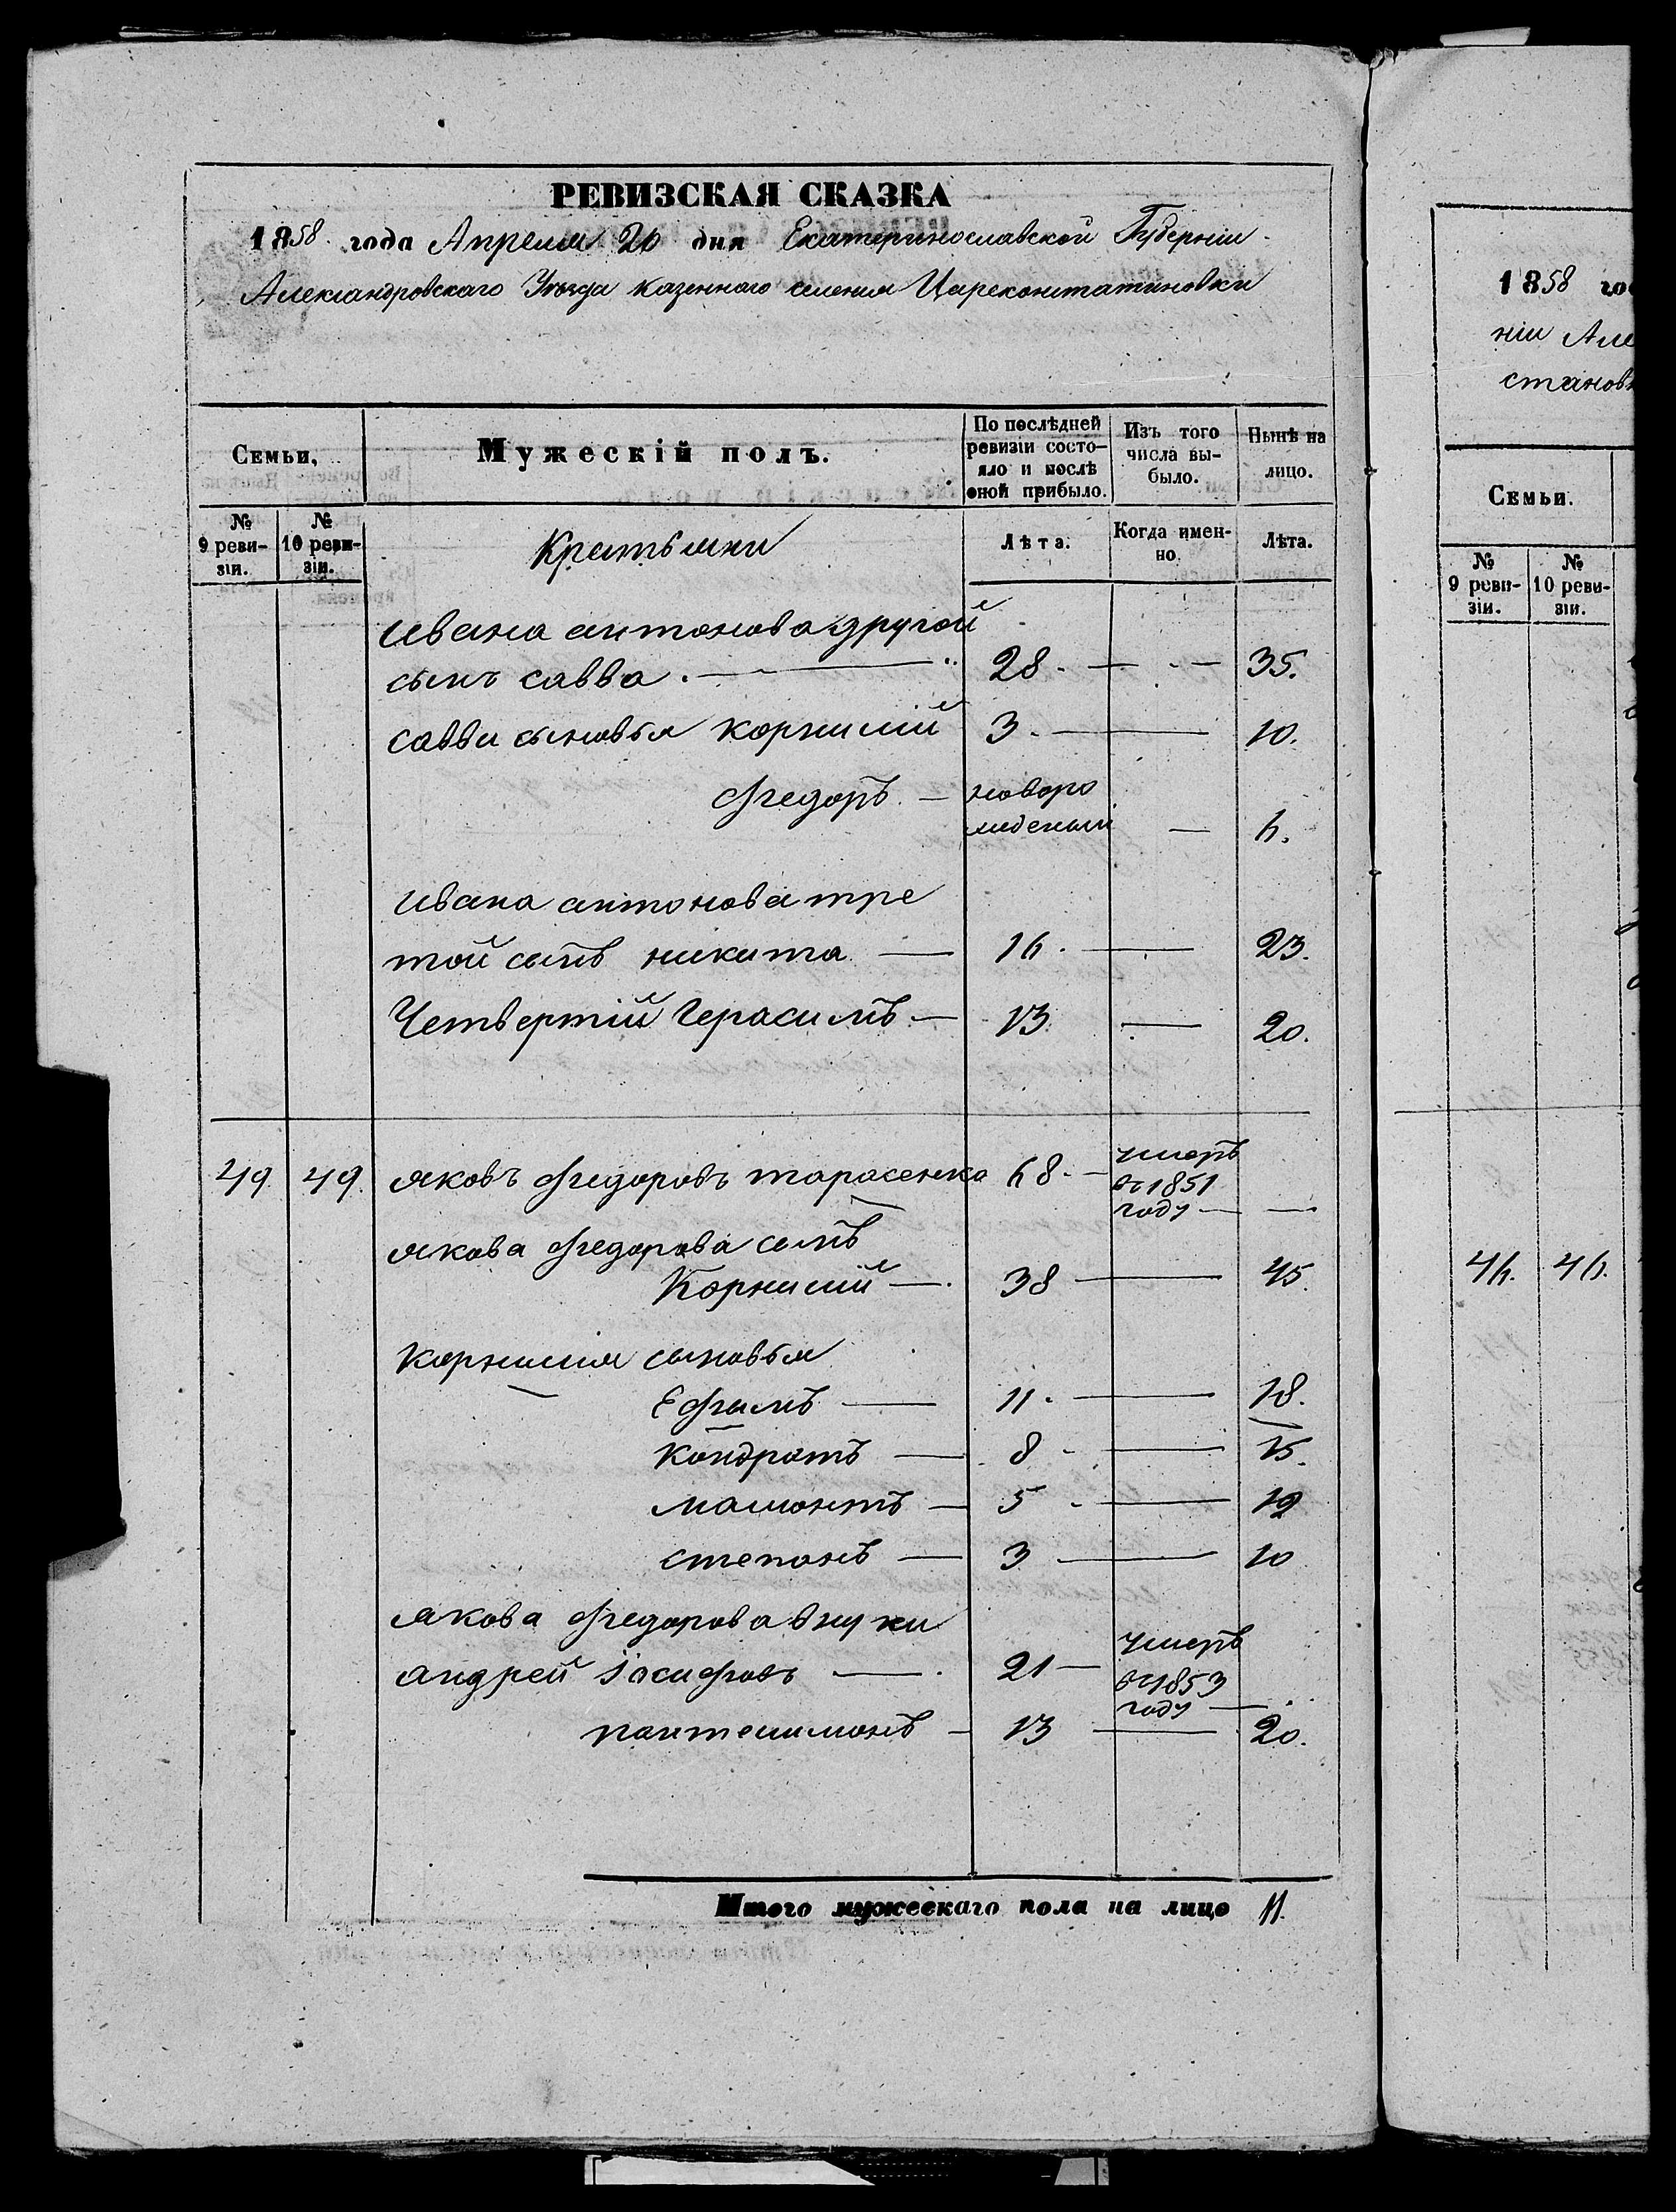 РЕВИЗСКАЯ СКАЗКА
1858. года Апреля 26 дня Екатеринославской Губернiи
Александровскаго Уѣзда казеннаго селенiя Цареконстатиновки
Семьи,
Мужескiй полъ.
По послѣдней ревизiи состояло и послѣ оной прибыло.
Изъ того числа выбыло.
Нынѣ на лицо.
№ 9 ревизiи.
№ 10 ревизiи.
Крестьяни
Лѣта.
Когда именно.
Лѣта.
Ивана антонова другой
сынъ савва. — 28. — 35.
савви сыновья корнилiй 3. — 10.
Фчедоръ. — новоро
жденый — 6.
Ивана антонова тре
той сынъ никита — 16. — 23.
Четвертiй Герасимъ — 13 — 20.
49 49 яковъ Фчедоровъ тарасенко 68. — умеръ
въ 1851
году — —
якова Фчедорова сынъ
Корнилiй — 38 — 45.
корнилия сыновья
Ефчымъ — 11. — 18.
кондратъ — 8 — 15.
мамонтъ — 5 — 12
степонъ — 3 — 10
якова Фчедорова внуки
андрей iосифовъ — 21 — умеръ
въ 1853
году —
пантелимонъ — 13 — 20.
Итого мужескаго пола на лицо 11.
1858 го
нiи Але
станов
Семьи.
№ 9 ревизiи.
№ 10 ревизiи.
46. 46.